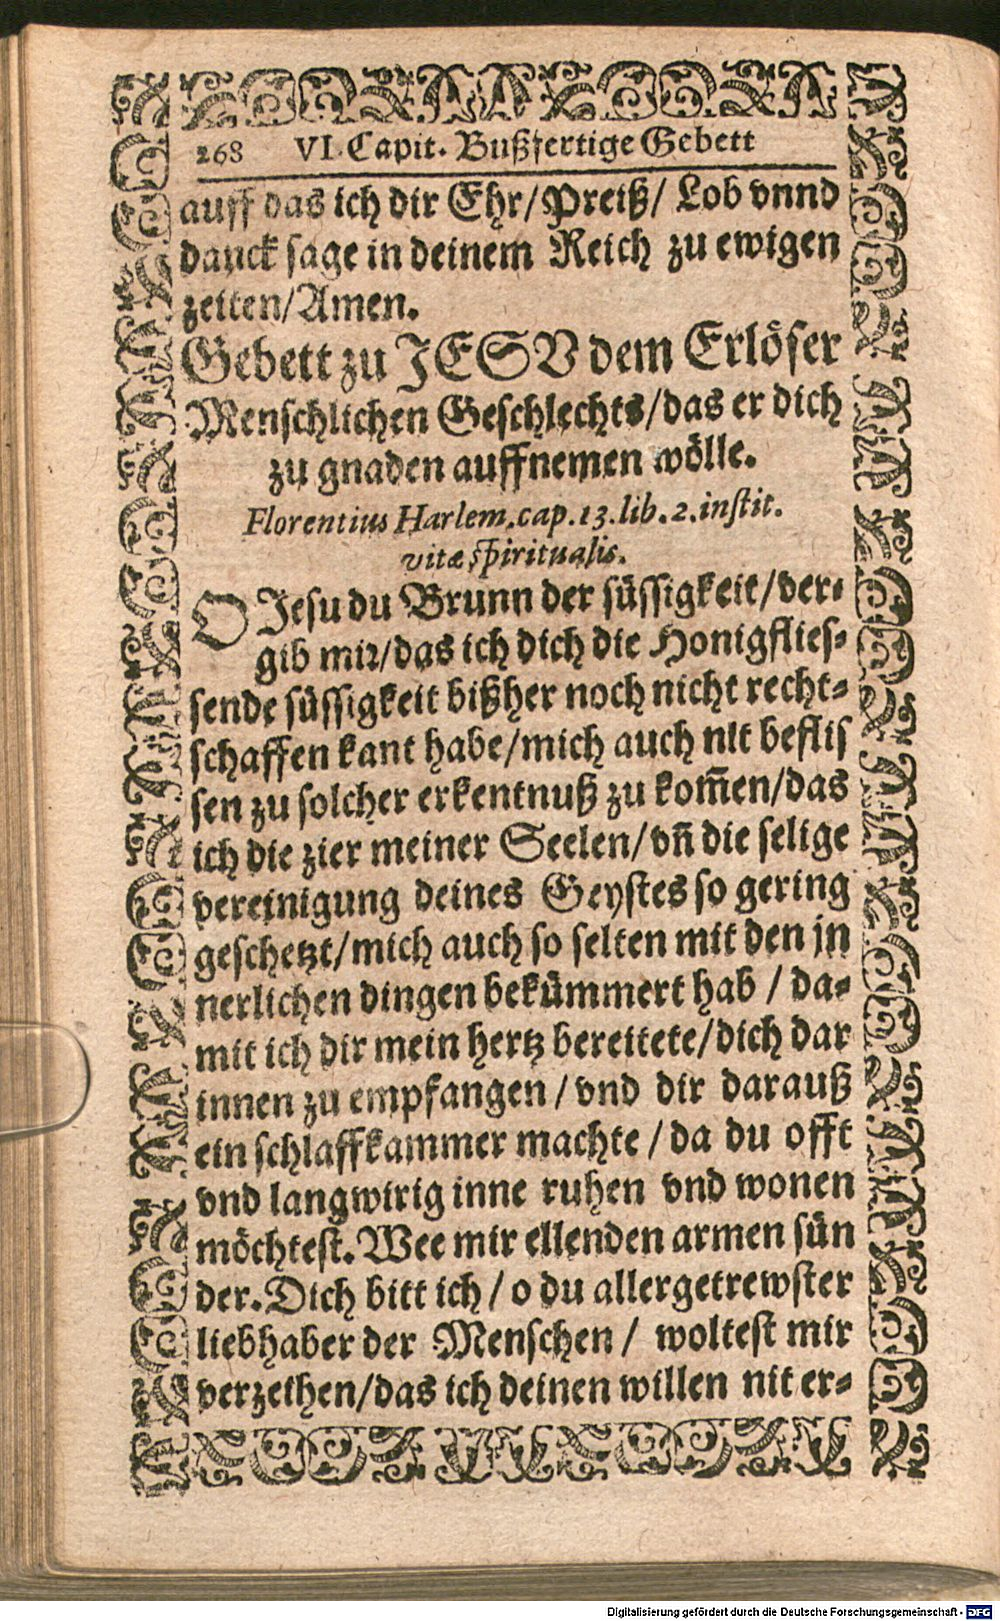 268 VI. Capit. Bußfertige Gebett
auff das ich dir Ehr/Preiß/ Lob vnnd
danck sage in deinem Reich zu ewigen
zeiten/Amen.
Gebett zu JESV dem Erlöser
Menschlichen Geschlechts/das er dich
zu gnaden auffnemen wölle.
Florentius Harlem. cap. 13. lib. 2. instit.
vitæ spiritualis.
O Jesu du Brunn der süssigkeit/ver-
gib mir/das ich dich die Honigflies-
sende süssigkeit bißher noch nicht recht-
schaffen kant habe/mich auch nit beflis
sen zu solcher erkentnuß zu kom̃en/das
ich die zier meiner Seelen/vñ die selige
vereinigung deines Geystes so gering
geschetzt/mich auch so selten mit den jn
nerlichen dingen bekümmert hab / da-
mit ich dir mein hertz bereitete/dich dar
innen zu empfangen / vnd dir darauß
ein schlaffkammer machte / da du offt
vnd langwirig inne ruhen vnd wonen
möchtest. Wee mir ellenden armen sün
der. Dich bitt ich / o du allergetrewster
liebhaber der Menschen / woltest mir
verzeihen/das ich deinen willen nit er-
Digitalisierung gefördert durch die Deutsche Forschungsgemeinschaft - DFG